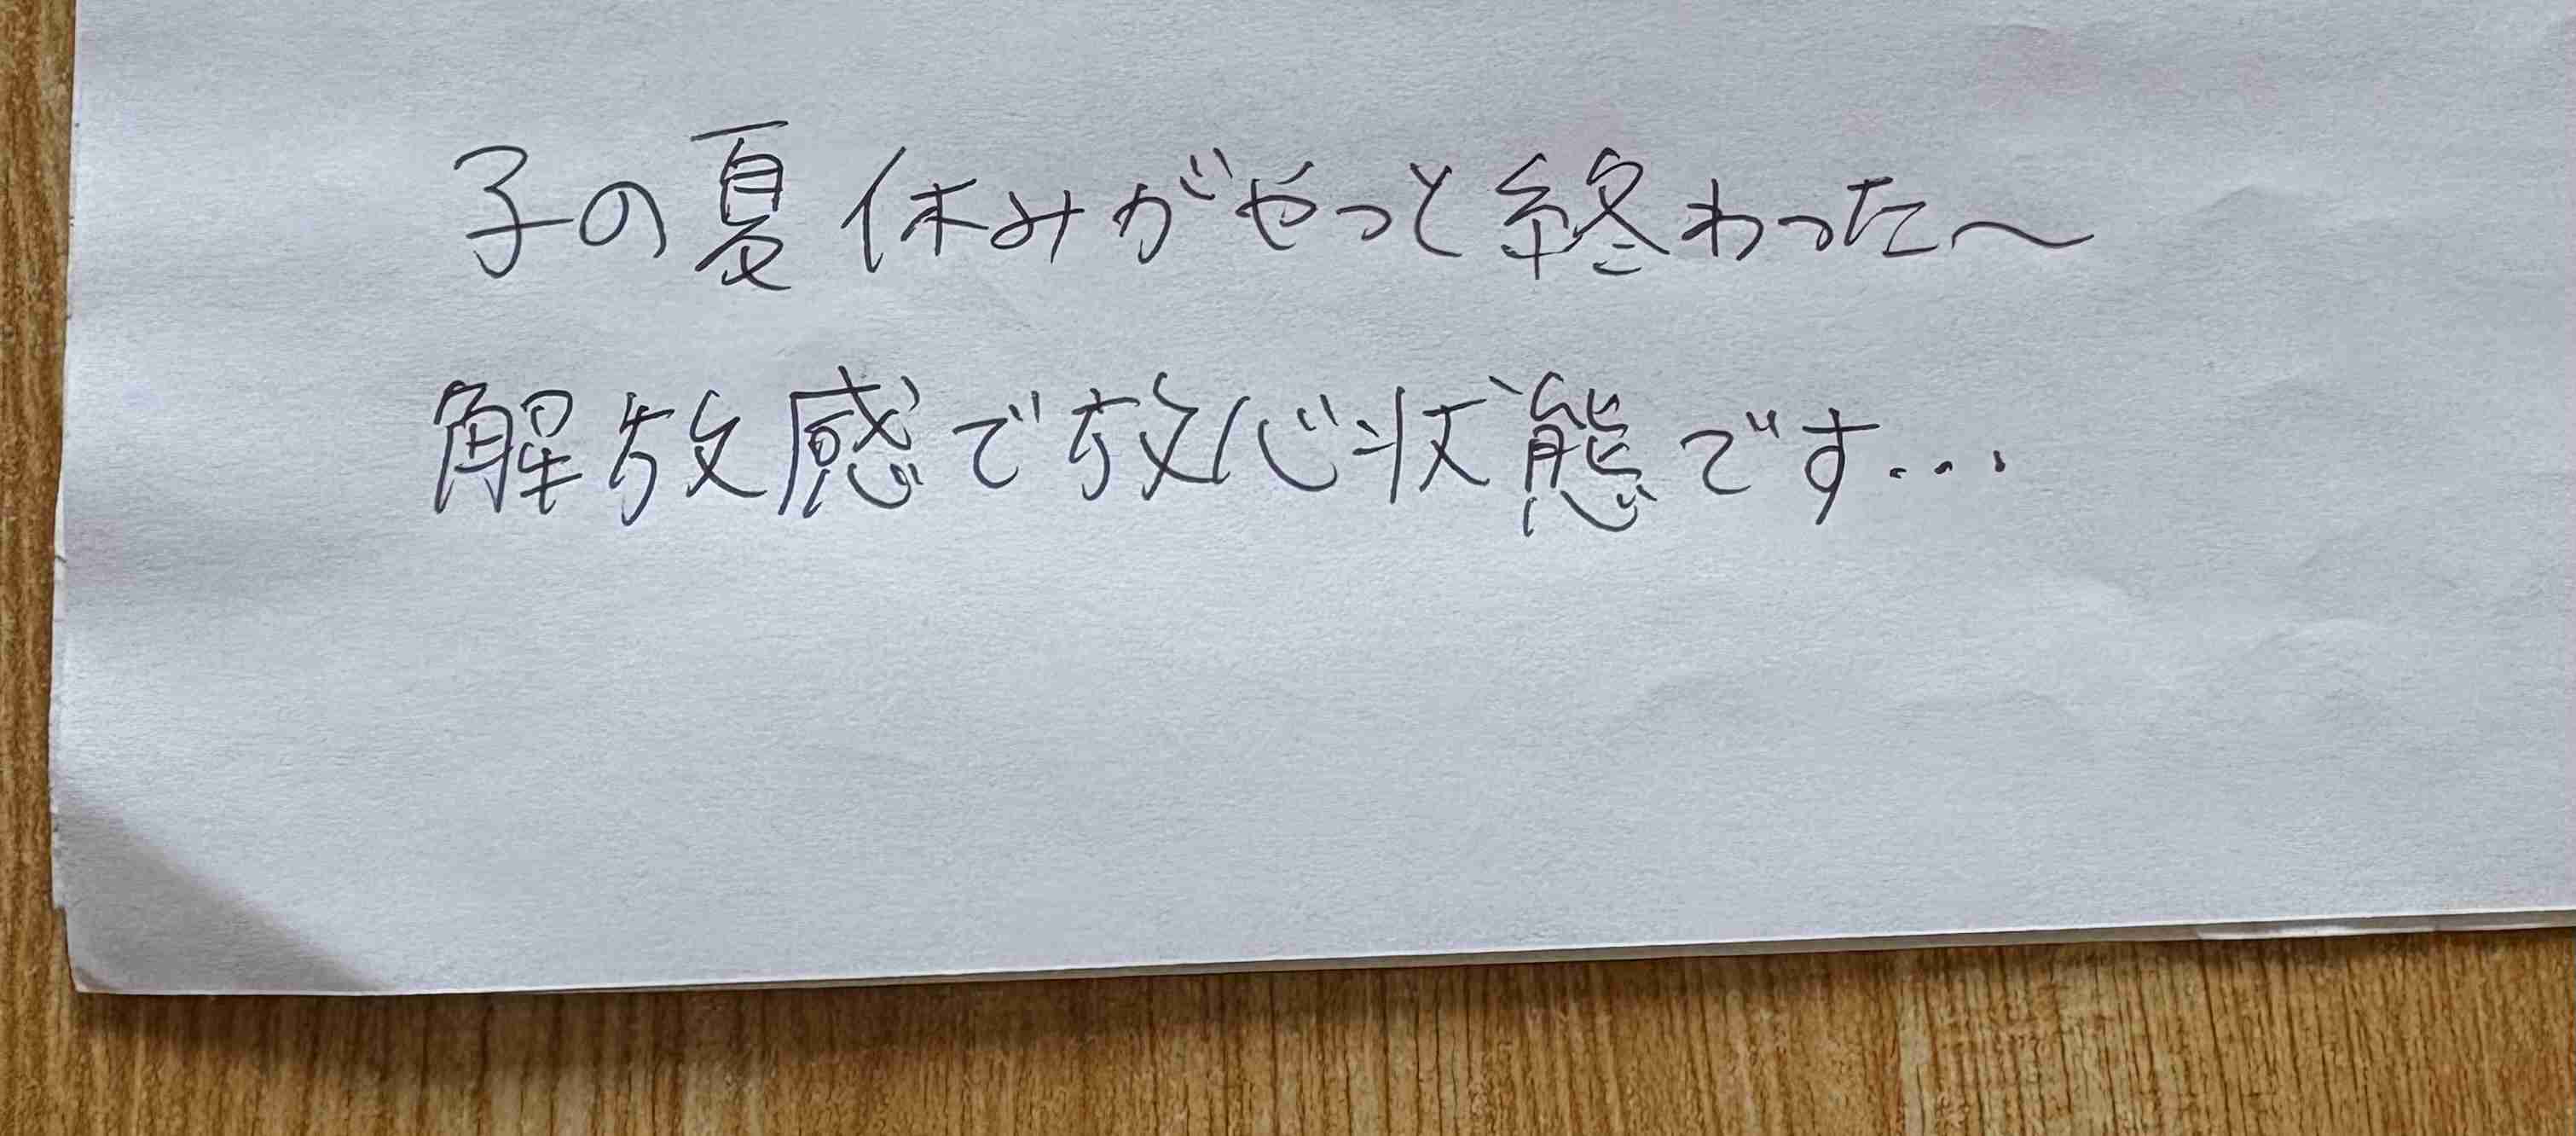 子の夏休みがやっと終わった〜
解放感で放心状態です...